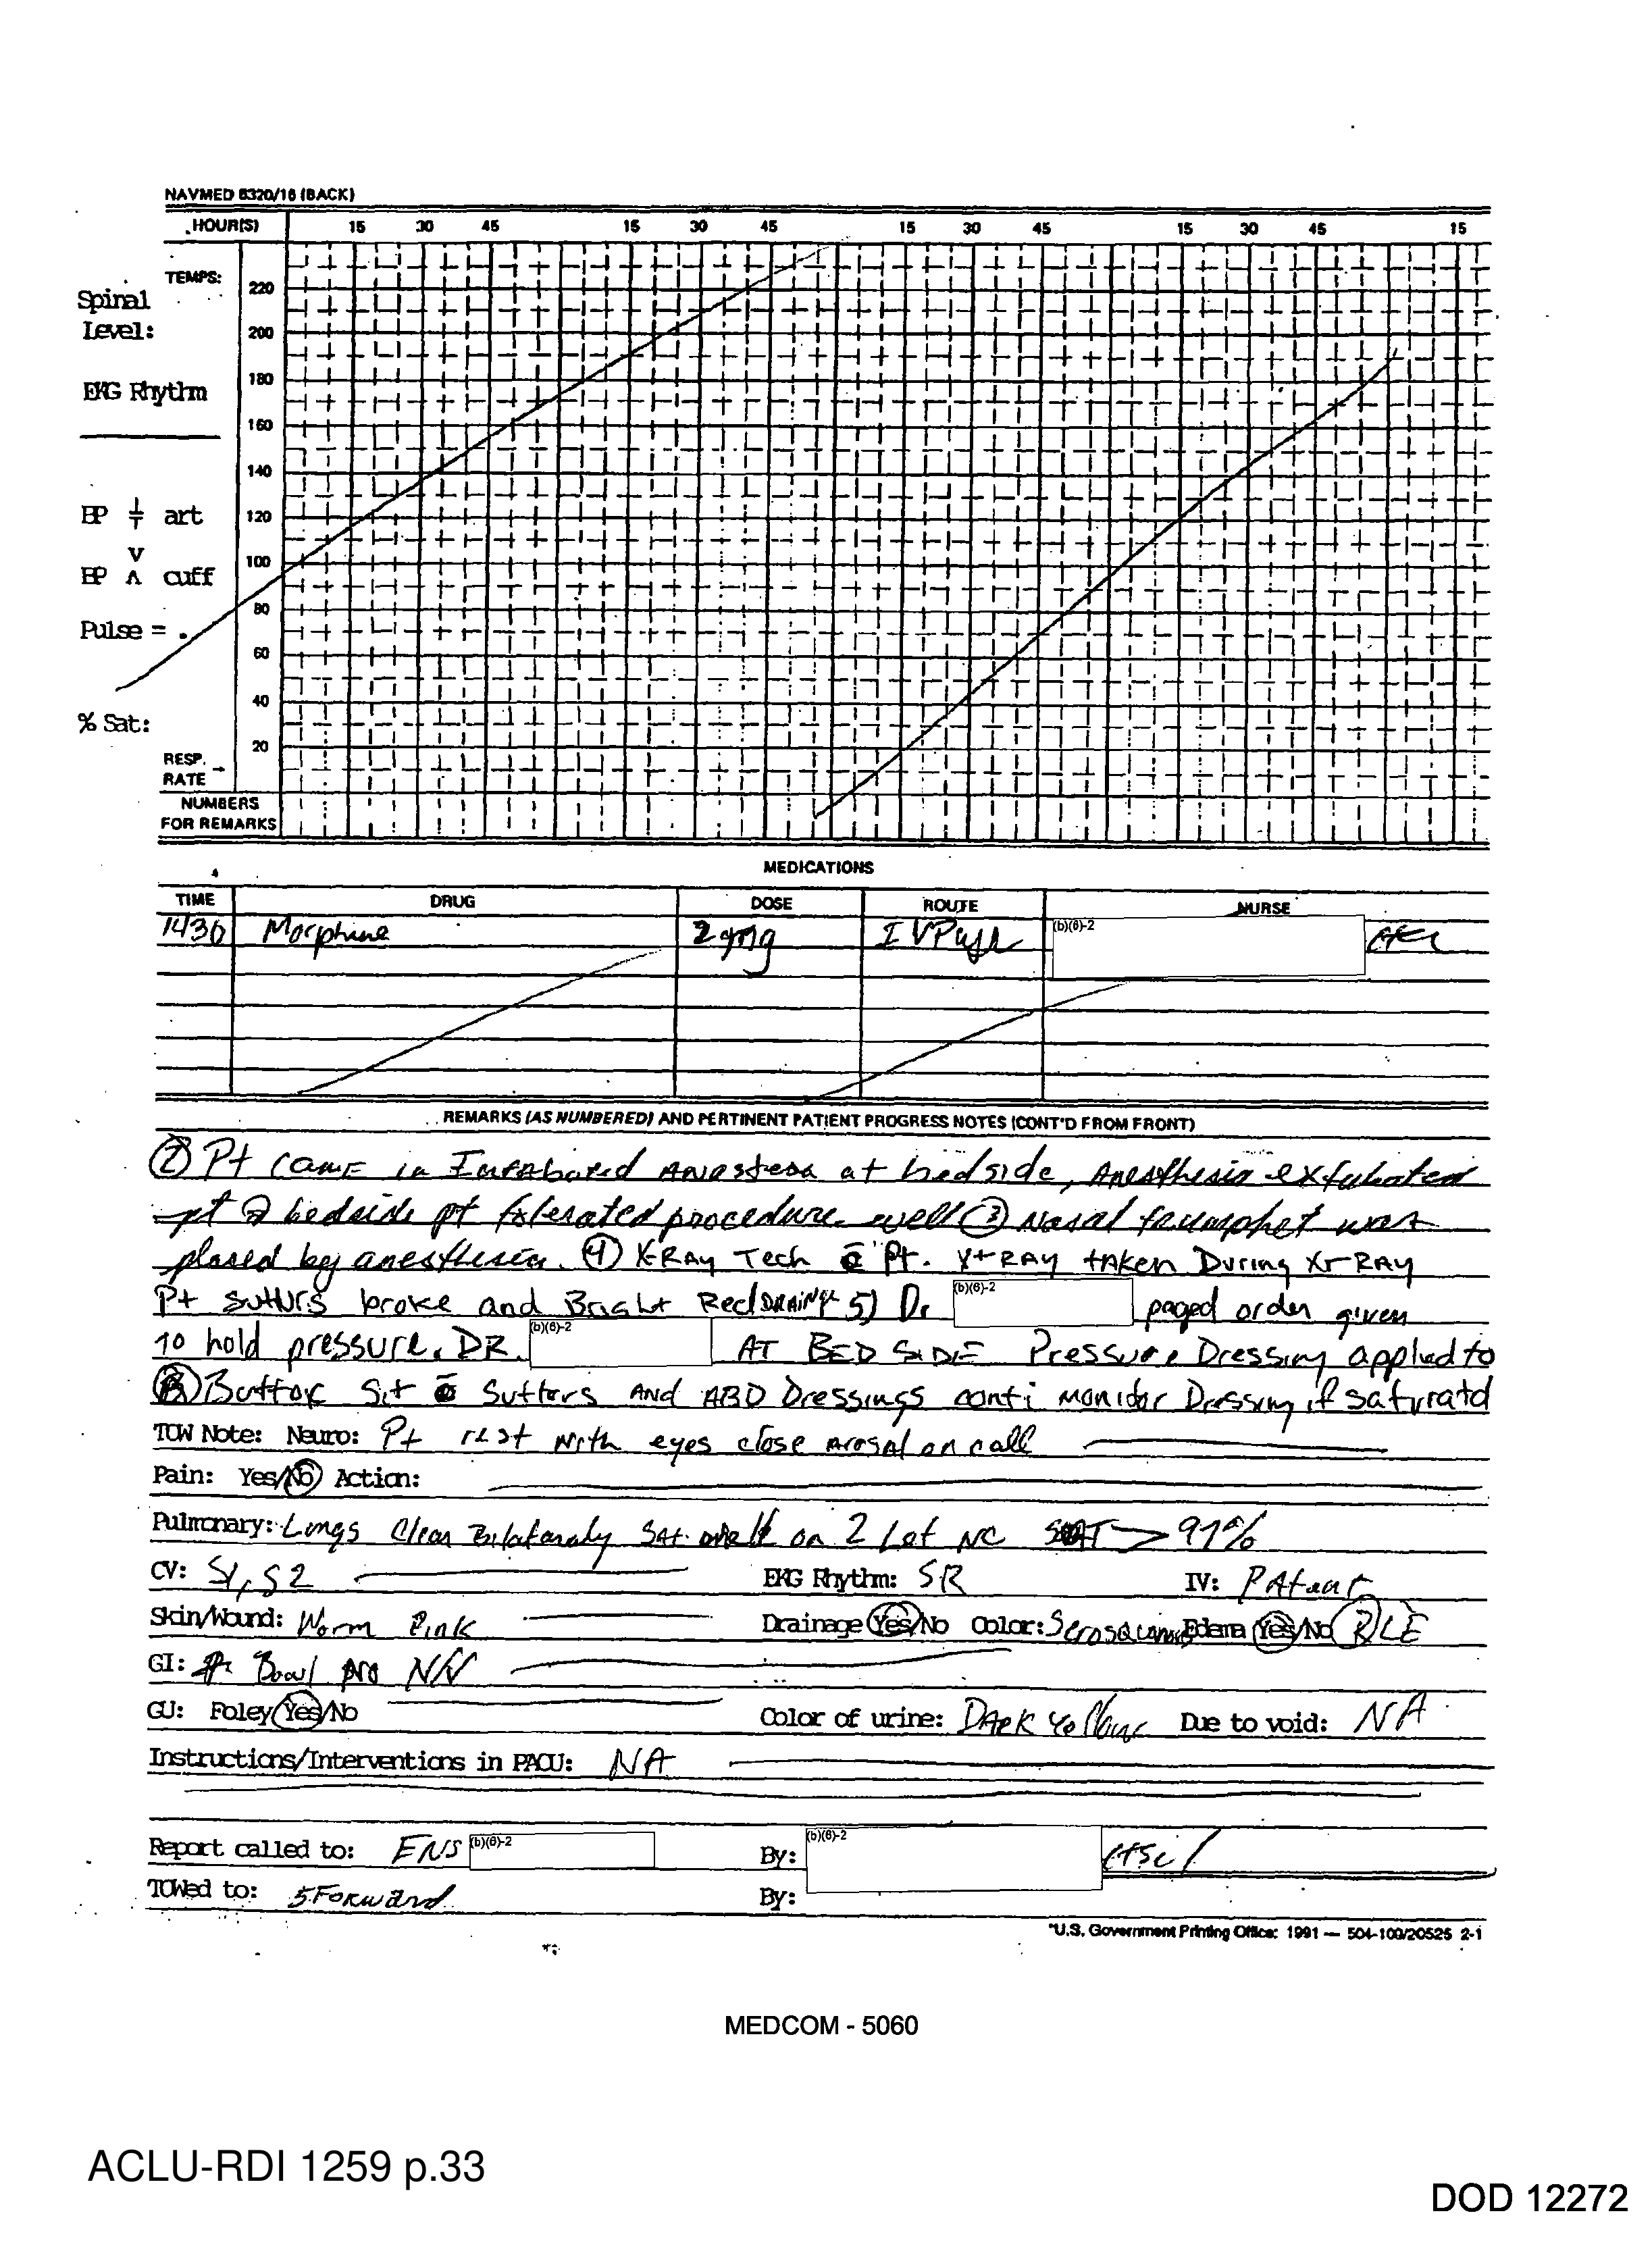 NAVMED 6320/16 (BACK)
HOUR(S) 15 30 45 15 30 45 15 30 45 15 30 45 15
TEMPS:
Spinal
Level:
220
200
EKG Rhythm
180
160
140
BP art
120
BP V Λ cuff
100
80
Pulse = .
60
40
% Sat:
20
RESP. →
RATE
NUMBERS
FOR REMARKS
MEDICATIONS
TIME DRUG DOSE ROUTE NURSE
1430 Morphine 2 mg IV Push (b)(6)-2
REMARKS (AS NUMBERED) AND PERTINENT PATIENT PROGRESS NOTES (CONT'D FROM FRONT)
② Pt came in at bedside, Anesthesia extubated
pt @ bedside pt tolerated procedure well ③ Nasal trumphet was
placed by anesthesia. ④ X-RAY Tech c̄ Pt. X-RAY taken During X-RAY
Pt suturs broke and Bright Red DRAINGE 5) Dr (b)(6)-2 paged order given
to hold pressure. DR. (b)(6)-2 AT BED SIDE Pressure Dressing applied to
Ⓡ Buttox Sit c̄ Sutters AND ABD Dressings conti monitor Dressing if saturatd
TOW Note: Neuro: Pt rest with eyes close arosal on call
Pain: Yes/No Action:
Pulmonary: Lungs Clear Bilateraly Sat well on 2 Let NC SAT > 97%
CV: S1, S2 EKG Rhythm: SR IV: PAtent
Skin/Wound: Warm Pink Drainage Yes/No Color: Edema Yes/No Ⓡ LE
GI: Bowl NN
GU: Foley Yes/No Color of urine: DArk Due to void: NA
Instructions/Interventions in PACU: NA
Report called to: ENS (b)(6)-2 By: (b)(6)-2
TOWed to: 5 Forward By:
*U.S. Government Printing Office: 1991 — 504-100/20525 2-1
MEDCOM - 5060
ACLU-RDI 1259 p.33
DOD 12272